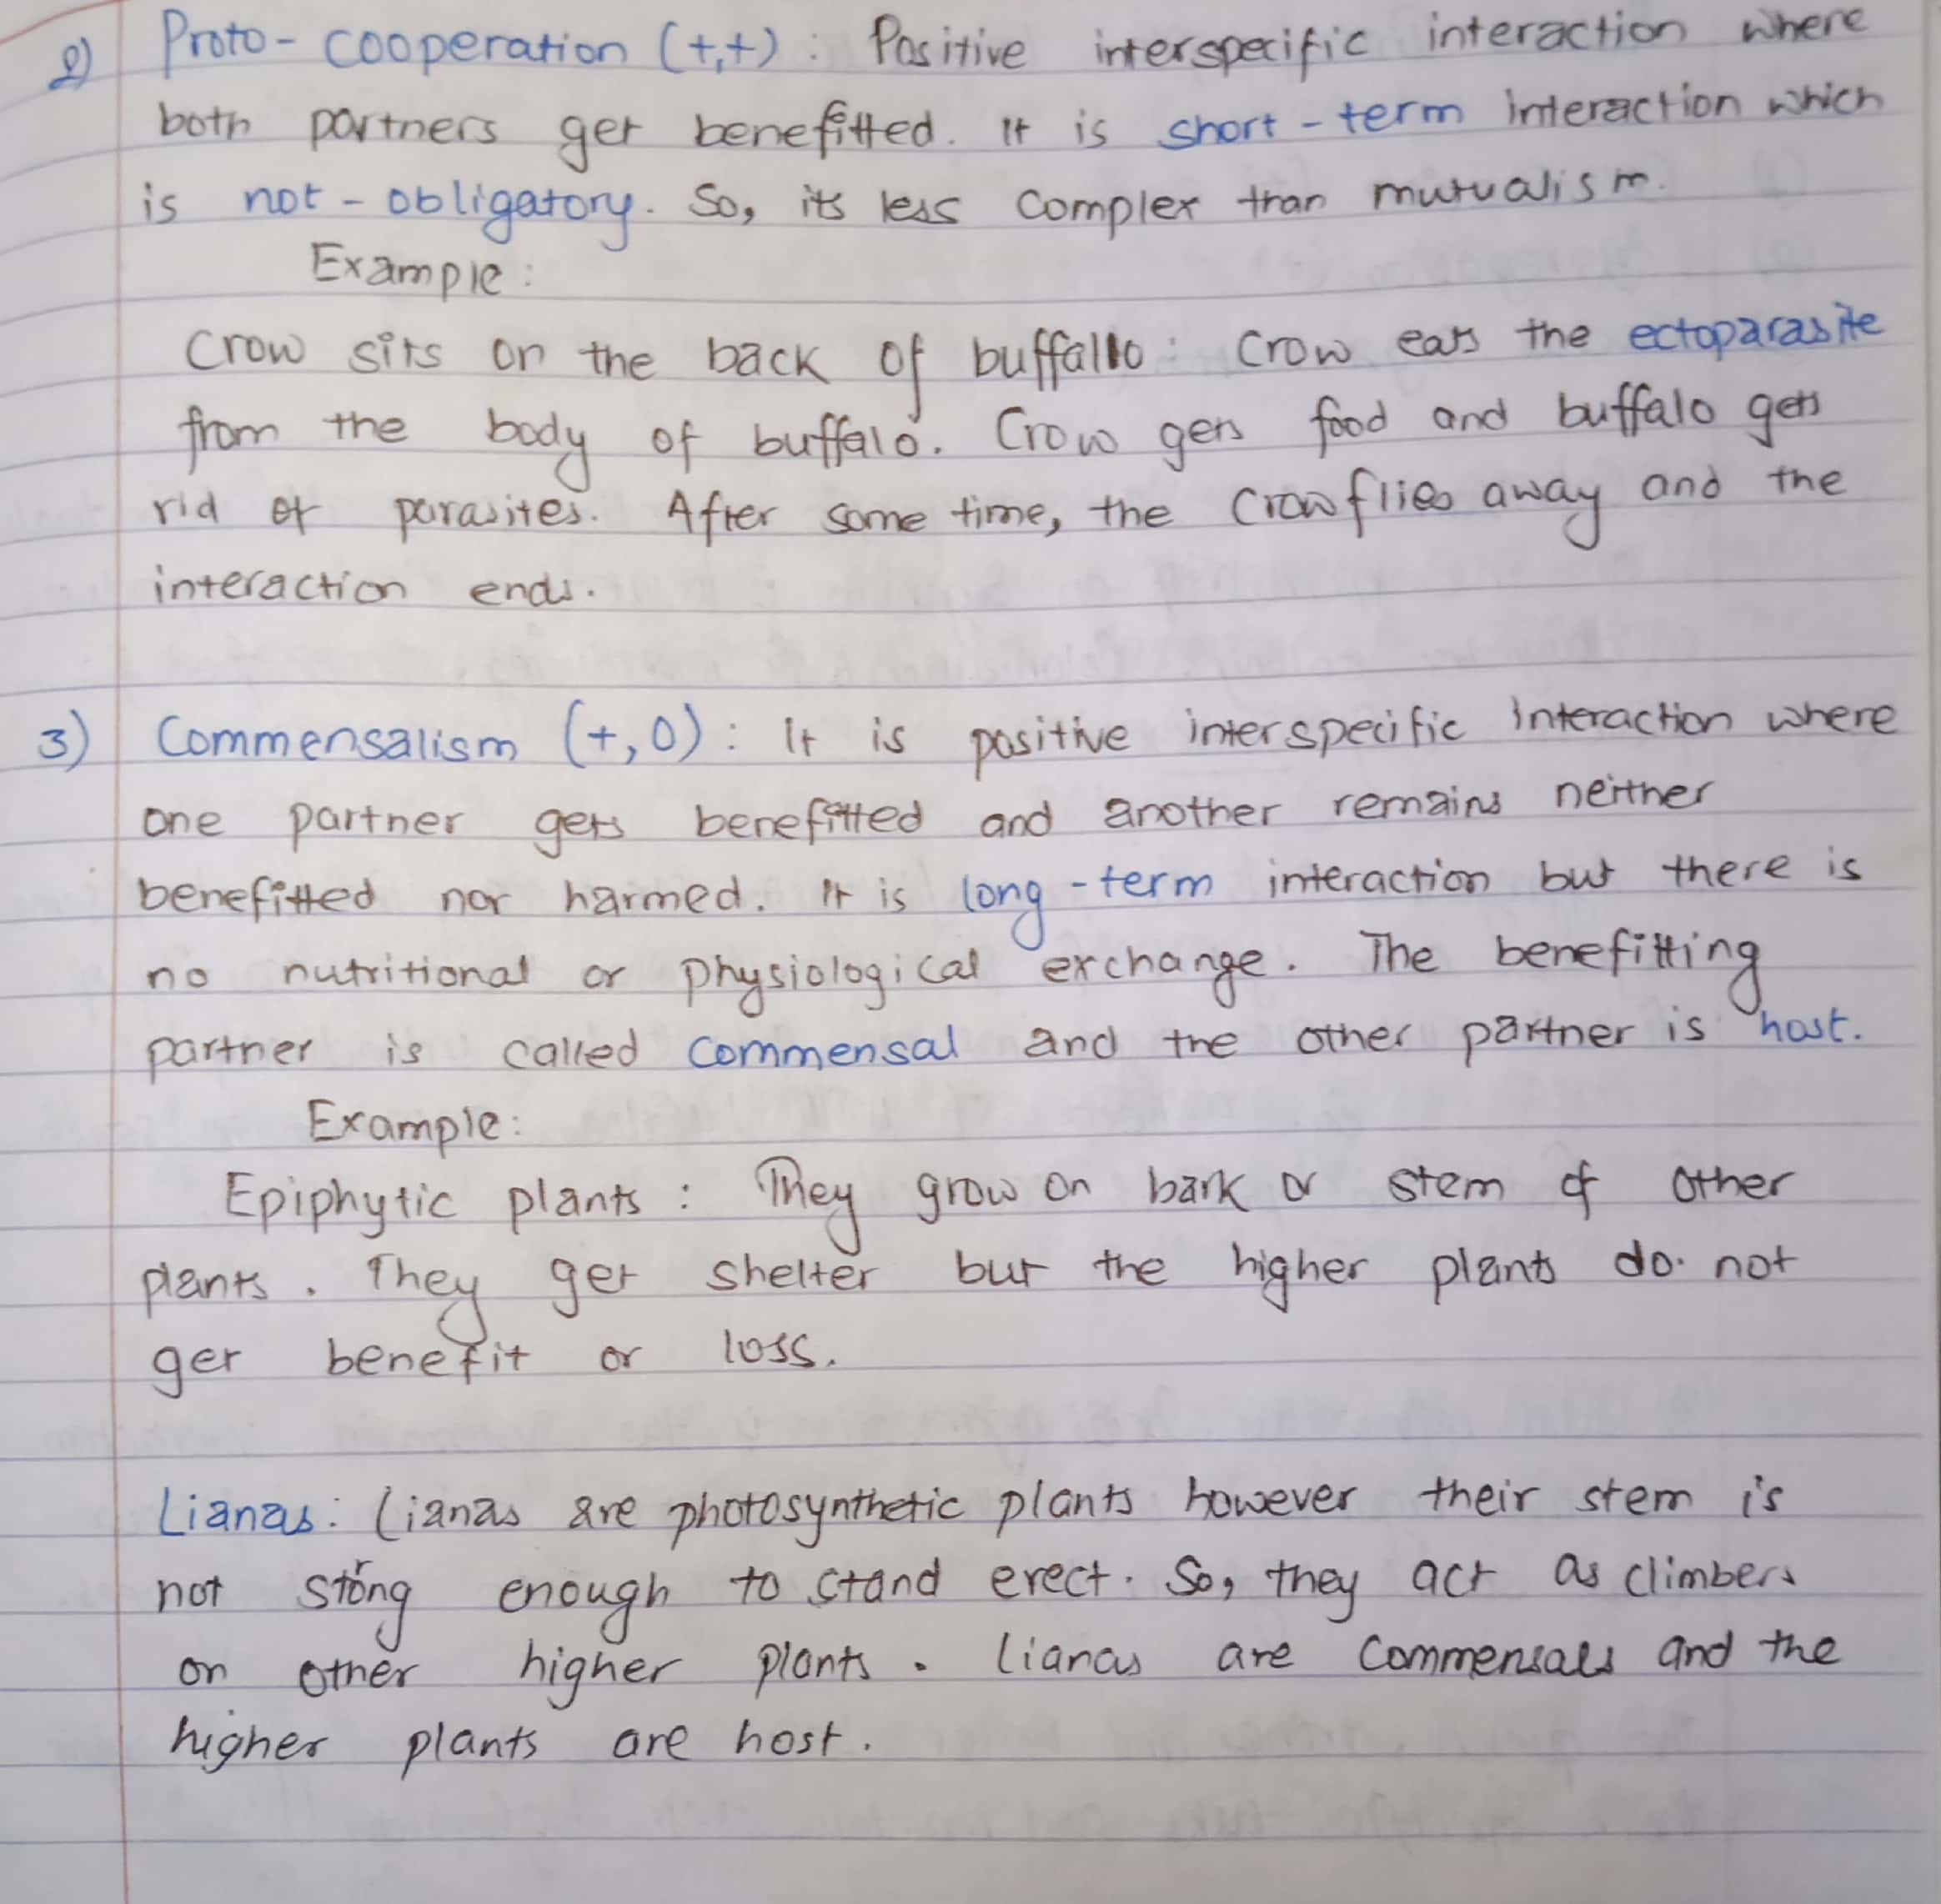 2) Proto-cooperation (+,+): Positive interspecific interaction where
both partners get benefitted. It is short-term interaction which
is not-obligatory. So, its less complex than mutualism.
Example:
Crow sits on the back of buffallo: Crow eats the ectoparasite
from the body of buffalo. Crow gets food and buffalo gets
rid of parasites. After some time, the crow flies away and the
interaction ends.
3) Commensalism (+,0): It is positive interspecific interaction where
one partner gets benefitted and another remains neither
benefitted nor harmed. It is long-term interaction but there is
no nutritional or physiological exchange. The benefitting
partner is called commensal and the other partner is host.
Example:
Epiphytic plants: They grow on bark or stem of other
plants. They get shelter but the higher plants do not
get benefit or loss.
Lianas: Lianas are photosynthetic plants however their stem is
not strong enough to stand erect. So, they act as climbers
on other higher plants. Lianas are commensals and the
higher plants are host.